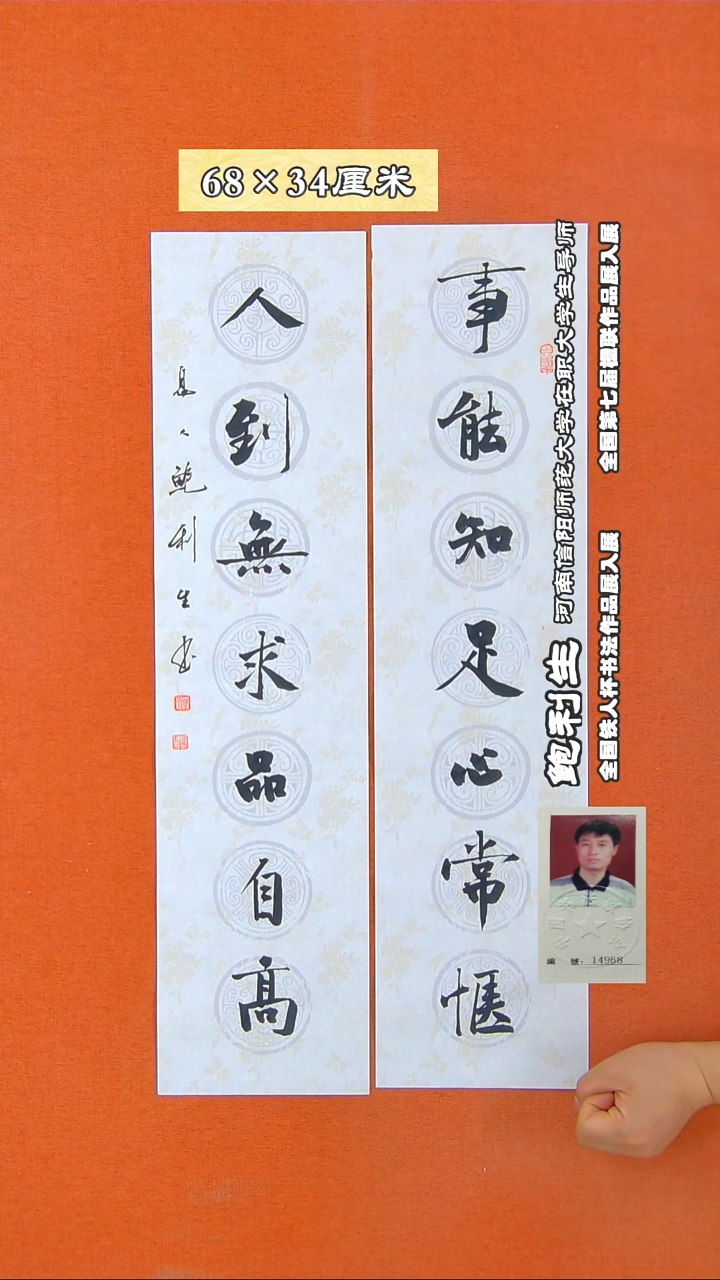 68×34厘米
事能知足心常愜
人到無求品自高
息人鮑利生书
鲍利生
河南信阳师范大学在职大学生导师
全国铁人杯书法作品展入展
全国第七届楹联作品展入展
編號：14968